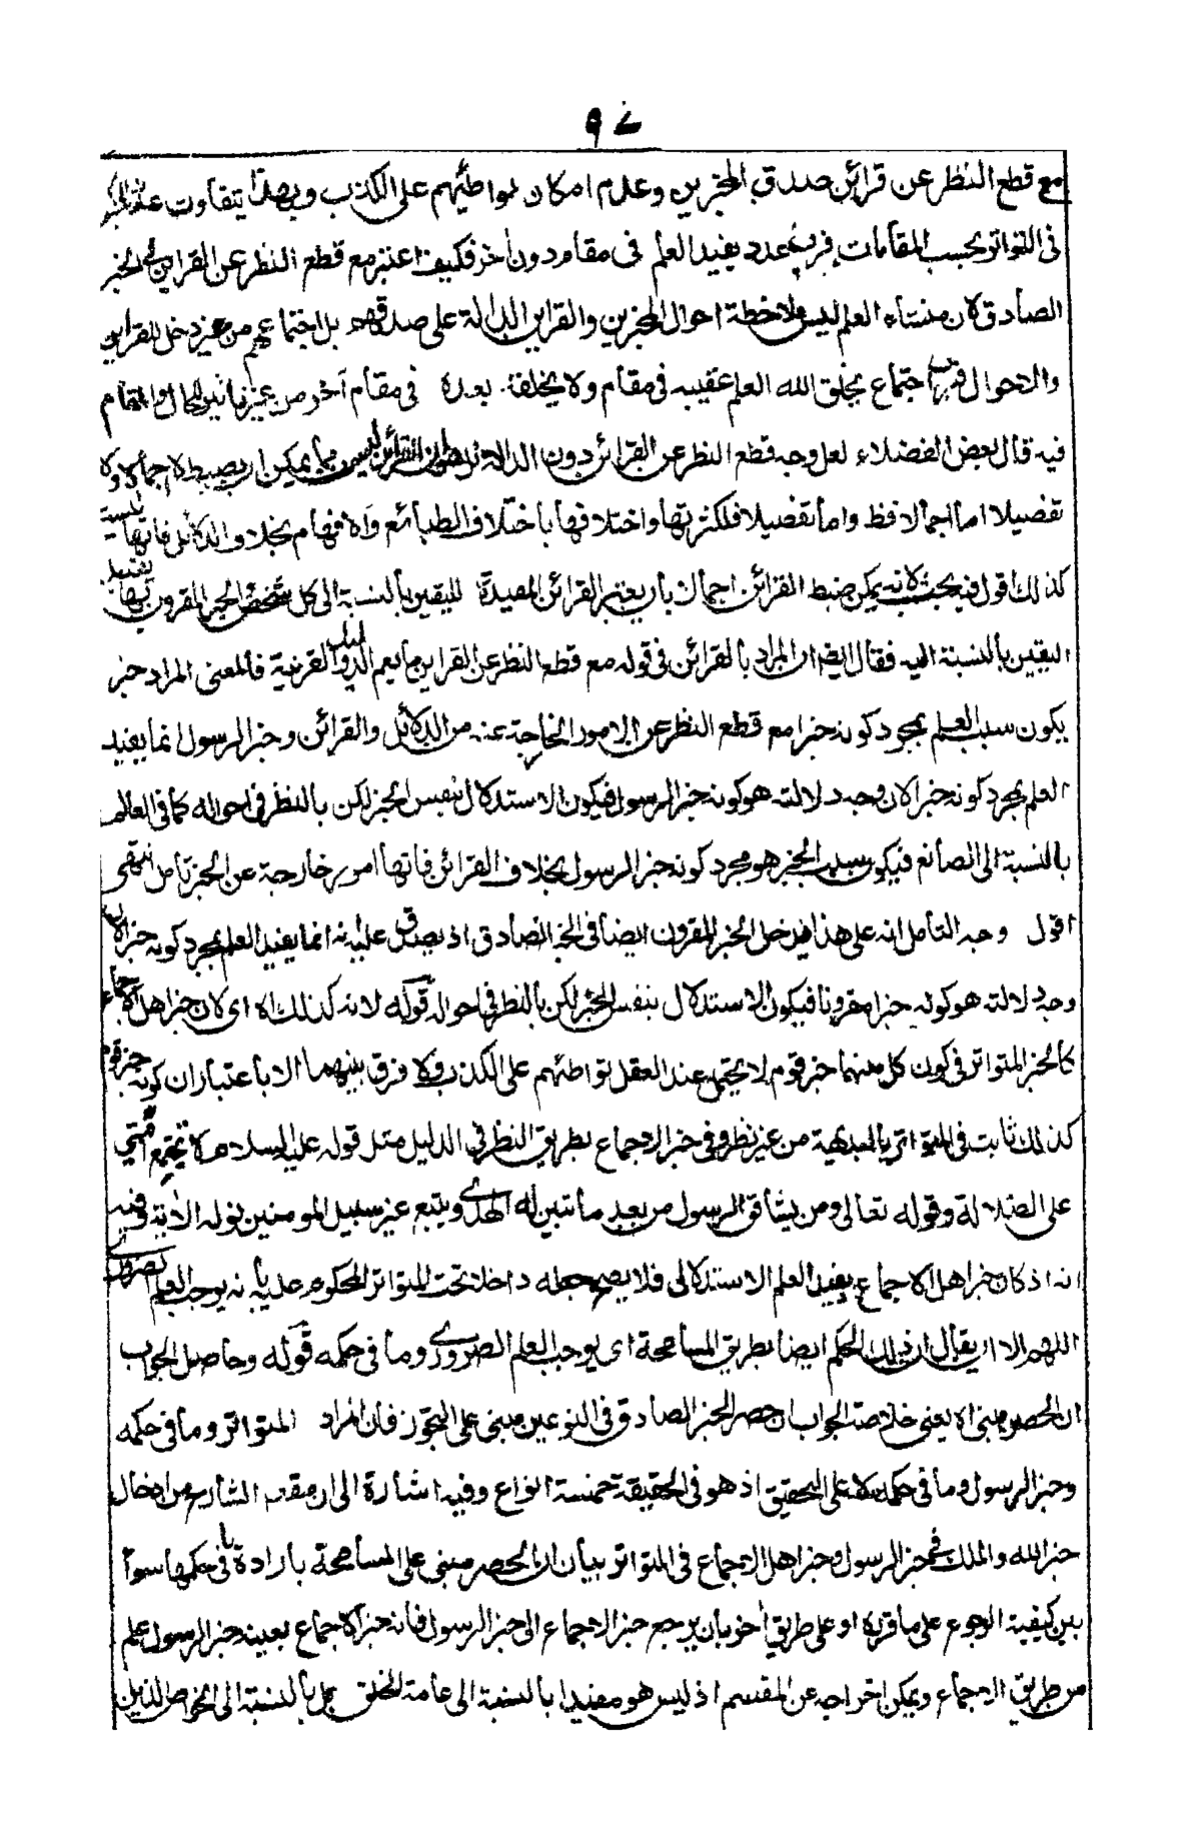 ٩٧
مع قطع النظر عن قرائن صدق المخبرين وعدم امكان تواطئهم على الكذب وبهذا يتفاوت عدد المخبر
فى التواتر بحسب المقامات فرب عدد يفيد العلم فى مقام دون آخر فكيف اعتبر مع قطع النظر عن القراين الخبر
الصادق كان منشاء العلم ليس ملاحظة احوال المخبرين والقراين الدالة على صدقهم بل اجتماعهم من غير دخل للقراين
والاحوال فرب اجتماع يخلق الله العلم عقيبه فى مقام ولا يخلقه بعده فى مقام آخر من غير تاثير للحال والمقام
فيه قال بعض الفضلاء لعل وجه قطع النظر عن القرائن دون الدلائل ان القرائن ليس مما يمكن ان يضبط لا اجمالا ولا
تفصيلا اما اجمالا فظ واما تفصيلا فلكثرتها واختلافها باختلاف الطبائع والافهام بخلاف الدلائل فانها ليست
كذلك اقول فيه بحث لانه يمكن ضبط القرائن اجمالا بان يعتبر القرائن المفيدة لليقين بالنسبة الى كل شخص الخبر المقرون بها يفيد
اليقين بالنسبة اليه فقال ايضا ان المراد بالقرائن فى قوله مع قطع النظر عن القراين ما يعم الدليل والقرنية فالمعنى المراد خبر
يكون سبب العلم بمجرد كونه خبرا مع قطع النظر عن الامور الخارجة عنه من الدلائل والقرائن وخبر الرسول انما يفيد
العلم بمجرد كونه خبرا لان وجه دلالته هو كونه خبر الرسول فيكون الاستدلال بنفس الخبر لكن بالنظر فى احواله كما فى العالم
بالنسبة الى الصانع فيكون سبب الخبر هو مجرد كونه خبر الرسول بخلاف القرائن فانها امور خارجة عن الخبر تامل انتهى
اقول وجه التامل انه على هذا يدخل الخبر المقرون ايضا فى الخبر الصادق اذ يصدق عليه انه انما يفيد العلم بمجرد كونه خبرا لان
وجه دلالته هو كونه خبرا مقرونا فيكون الاستدلال بنفس الخبر لكن بالنظر فى احواله قوله لانه كذلك اه اى كان خبر اهل الاجماع
كالخبر المتواتر فى كون كل منهما خبر قوم لا يحتمل عند العقل تواطئهم على الكذب ولا فرق بينهما الا باعتبار ان كونه خبر قوم
كذلك ثابت فى المتواتر بالبديهة من غير نظر وفى خبر الاجماع بطريق النظر فى الدليل مثل قوله عليه السلام لا تجتمع امتى
على الضلالة وقوله تعالى ومن يشاقق الرسول من بعد ما تبين له الهدى ويتبع غير سبيل المومنين نوله الاية وفيه
انه اذ كان خبر اهل الاجماع يفيد العلم الاستدلالى فلا يصح جعله داخلا تحت المتواتر المحكوم عليه بانه يوجب العلم الضرورى
اللهم الا ان يقال ان ذلك الحكم ايضا بطريق المسامحة اى يوجب العلم الضرورى وما فى حكمه قوله وحاصل الجواب
ان الحصر مبنى اه يعنى خلاصة الجواب ان حصر الخبر الصادق فى النوعين مبنى على التجوز فان المراد المتواتر وما فى حكمه
وخبر الرسول وما فى حكمه لا على التحقيق اذ هو فى الحقيقة خمسة انواع وفيه اشارة الى ان مقصد الشارح من ادخال
خبر الله والملك فى خبر الرسول وخبر اهل الاجماع فى المتواتر بيان ان الحصر مبنى على المسامحة بارادة ما فى حكمها سواء
بين كيفية الرجوع على ما قرره او على طريق آخر بان يرجع خبر الاجماع الى خبر الرسول فانه خبر الاجماع بعينه خبر الرسول علم
من طريق الاجماع ويمكن اخراجه عن المقسم اذ ليس هو مفيدا بالنسبة الى عامة الخلق بل بالنسبة الى الخواص الذين